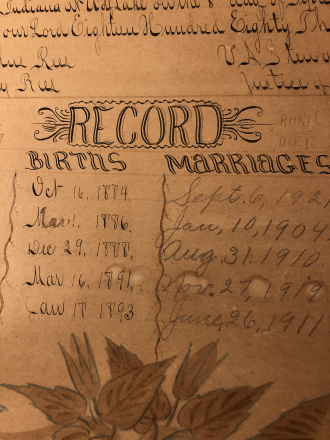 Indiana at on the day of
our Lord Eighteen Hundred Eighty Th
Rus
Rus Justice of
RECORD
BIRTHS MARRIAGES
Oct 16, 1884. Sept. 6, 192
Mar 1, 1886. Jan, 10, 1904
Dec 29, 1888. Aug. 31, 1910
Mar 16, 1891, Nov. 27, 1919
Jan 17 1893 June, 26, 1911